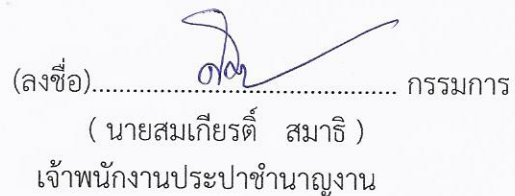 (ลงชื่อ)....................................... กรรมการ
( นายสมเกียรติ์ สมาธิ )
เจ้าพนักงานประปาชำนาญงาน